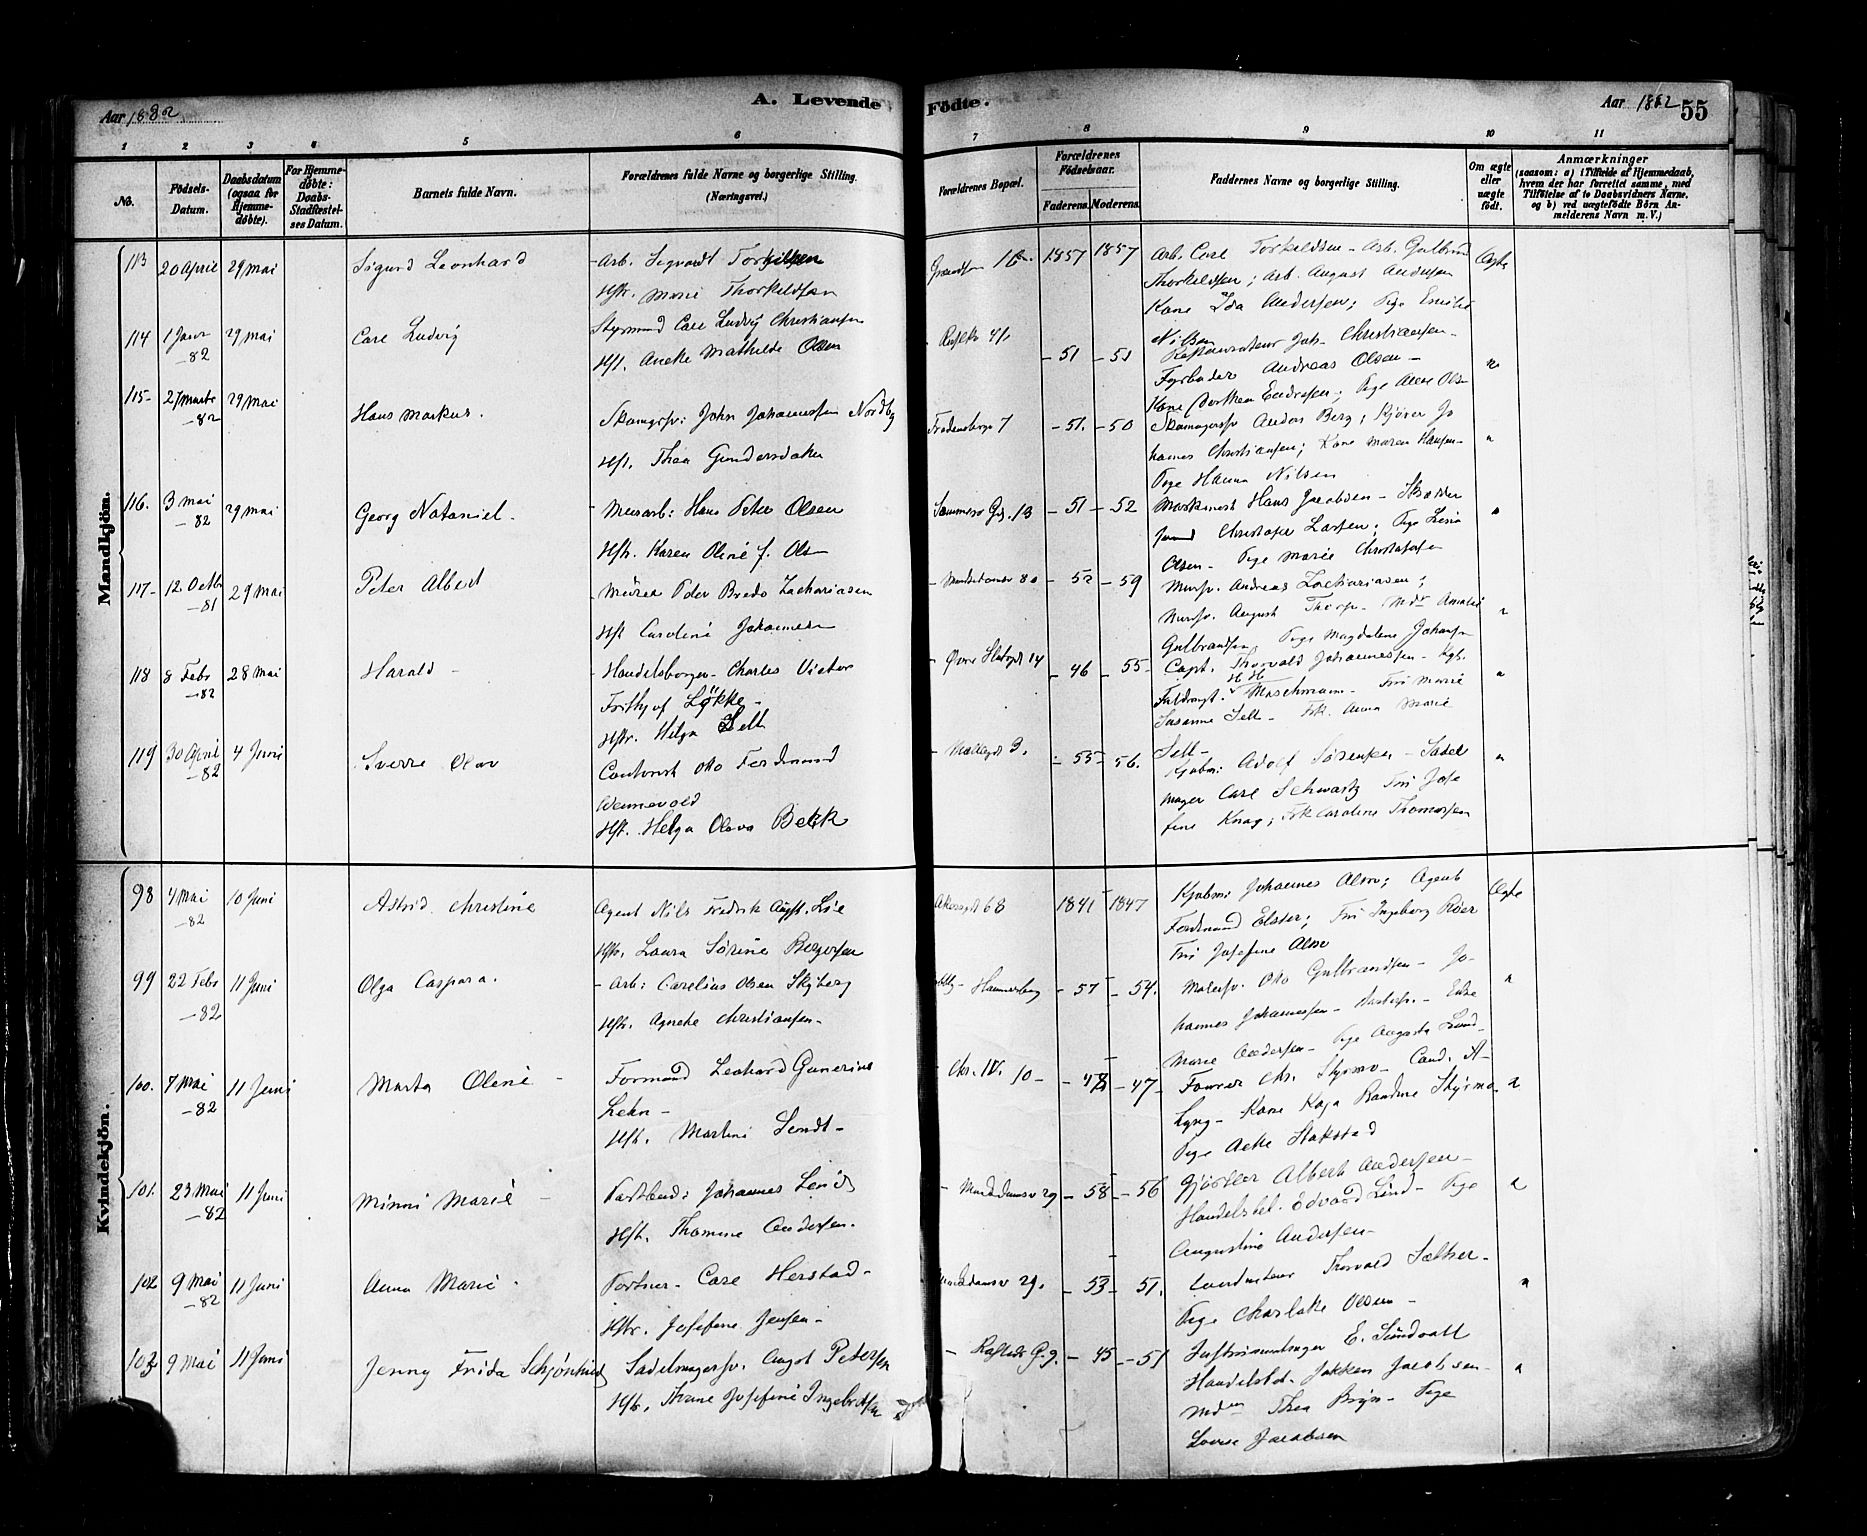 Aar 1882
A. Levende Födte.
Aar 1882
55
1 2 3 4 5 6 7 8 9 10 11
No.
Födsels-Datum.
Daabsdatum (ogsaa for Hjemmedöbte).
For Hjemmedöbte: Daabs-Stadfæstelses Datum.
Barnets fulde Navn.
Forældrenes fulde Navne og borgerlige Stilling. (Næringsvei.)
Forældrenes Bopæl.
Forældrenes Födselsaar.
Faderens. Moderens.
Faddernes Navne og borgerlige Stilling.
Om ægte eller uægte födt.
Anmærkninger
(saasom: a) i Tilfælde af Hjemmedaab, hvem der har forrettet samme, med Tilföielse af to Daabsvidners Navne, og b) ved uægtefödte Börn Anmelderens Navn m. V.)
Mandkjön.
113 20 April 29 Mai Sigurd Leonhard
Arb. Sigvardt Torkildsen
Hstr. Marie Thorkeldsen
1857 1857
Arb. Carl Torkeldsen - Arb. Gulbrand
Thorkeldsen; Arb. August Andersen
Kone Ida Andersen; Pige Emilie
Nilsen
Ægte
114 1 Janr -82 29 Mai Carl Ludvig
Styrmand Carl Ludvig Christiansen
Hst. Anette Mathilde Olsen
- 51 - 51
Restaurateur Joh. Christiansen -
Fyrböder Andreas Olsen -
Kone Dorthea Endresen; Pige Anne Olsen
115- 27 Marts -82 29 Mai Hans Markus.
Skomagersv: John Johannessen Nordby
Hst. Thea Gundersdatter
Fredensborgv 7 - 51. - 50
Skomagersv Anders Berg; Kjörer Jo
hannes Christiansen; Kone Maren Hansen -
Pige Hanna Nilsen
116. 3 Mai -82 29 Mai Georg Nataniel.
Murarb: Hans Peter Olsen
Hstr. Karen Oline f. Olsen
Sommero Gd. 13 - 51 - 52
Maskinist Hans Jacobsen -
Christofer Larsen; Pige Lesia
Olsen - Pige Marie Christofersen
117- 12 Octbr -81 29 Mai Peter Albert
Murer Peder Bredo Zachariasen
Hst Caroline Johannesen
- Maridalsv 80 - 52 - 59
Mursv. Andreas Zachariasen;
Mursv. August Thorp - Mdm Amalie
Gulbrandsen Pige Magdalene Johansen
118 8 Febr -82 28 Mai Harald -
Handelsborger - Charles Victor
Frithjof Lökke -
Hstr. Helga Sell
Övre Slotsgd 14 - 46 - 55 -
Capt. Thorvald Johannessen - Kgl.
Fuldmgt. H H Maschmann - Fru Marie
Susanne Sell - Frk. Anna Marie
Sell -
119 30 April -82 4 Juni Sverre Olav
Contorist Otto Ferdinand
Wennevold
Hst. Helga Olava Bekk
- Möllergd 3. - 55 - 56.
Kjøbm: Adolf Sörensen - Sadel
mager Carl Schwartz Fru Jose
fine Knag; Frk Caroline Thomassen
Kvindekjön.
98 4 Mai -82 10 Juni Astrid Christine
Agent Nils Fredrik Aug. Löe
Hstr. Laura Sörine Børgersen
Akersgt 68 1841 1847
Kjøbm: Johannes Alme; Agent
Ferdinand Elster; Fru Ingeborg Röer
Fru Josefine Alme
Ægte
99 22 Febr -82 11 Juni Olga Caspara.
- Arb: Carelius Olsen Skiberg
Hstr. Agnete Christiansen -
Hammersborg - 57 - 54.
Malersv. Otto Gulbrandsen - Jo-
hannes Johannessen - - Enke
Marie Andersen - Pige Augusta Lund -
100. 7 Mai -82 11 Juni Marta Oline -
Formand Leonard Gunerius
Lehn -
Hst. Martine Lundt -
Chr. IV. 10 - - 48 - 47 -
Chr. Styrmo - Cand. A -
Lyng - Kone Kaja Randine Styrmo
Pige Stakstad
101. 23 Mai -82 11 Juni Minni Marie -
Postbud: Johannes Lind
Hst. Thomine Andersen.
- Maridalsv 29 - 58 - 56
Gjörtler Albert Andersen -
Handelsbet. Edvard Lind - Pige
Augustine Andersen -
102 9 Mai -82 11 Juni Anna Marie .
Portner - Carl Herstad -
Hstr. Josefine Jensen -
Maridalsv 29. - 53 - 51.
Conducteur Thorvald Sæther -
Pige Charlotte Olsen -
103 9 Mai 11 Juni Jenny Frida Schjönhud
Sadelmagersv. August Petersen
Hstr. Thrine Josefine Ingebretsen
- Rosteds G. 9. - 45 - 51
Instrumentmager E. Sundvall
Handelsbet. Jakken Jacobsen -
Mdm Thea Bryn - Pige
Lovise Jacobsen